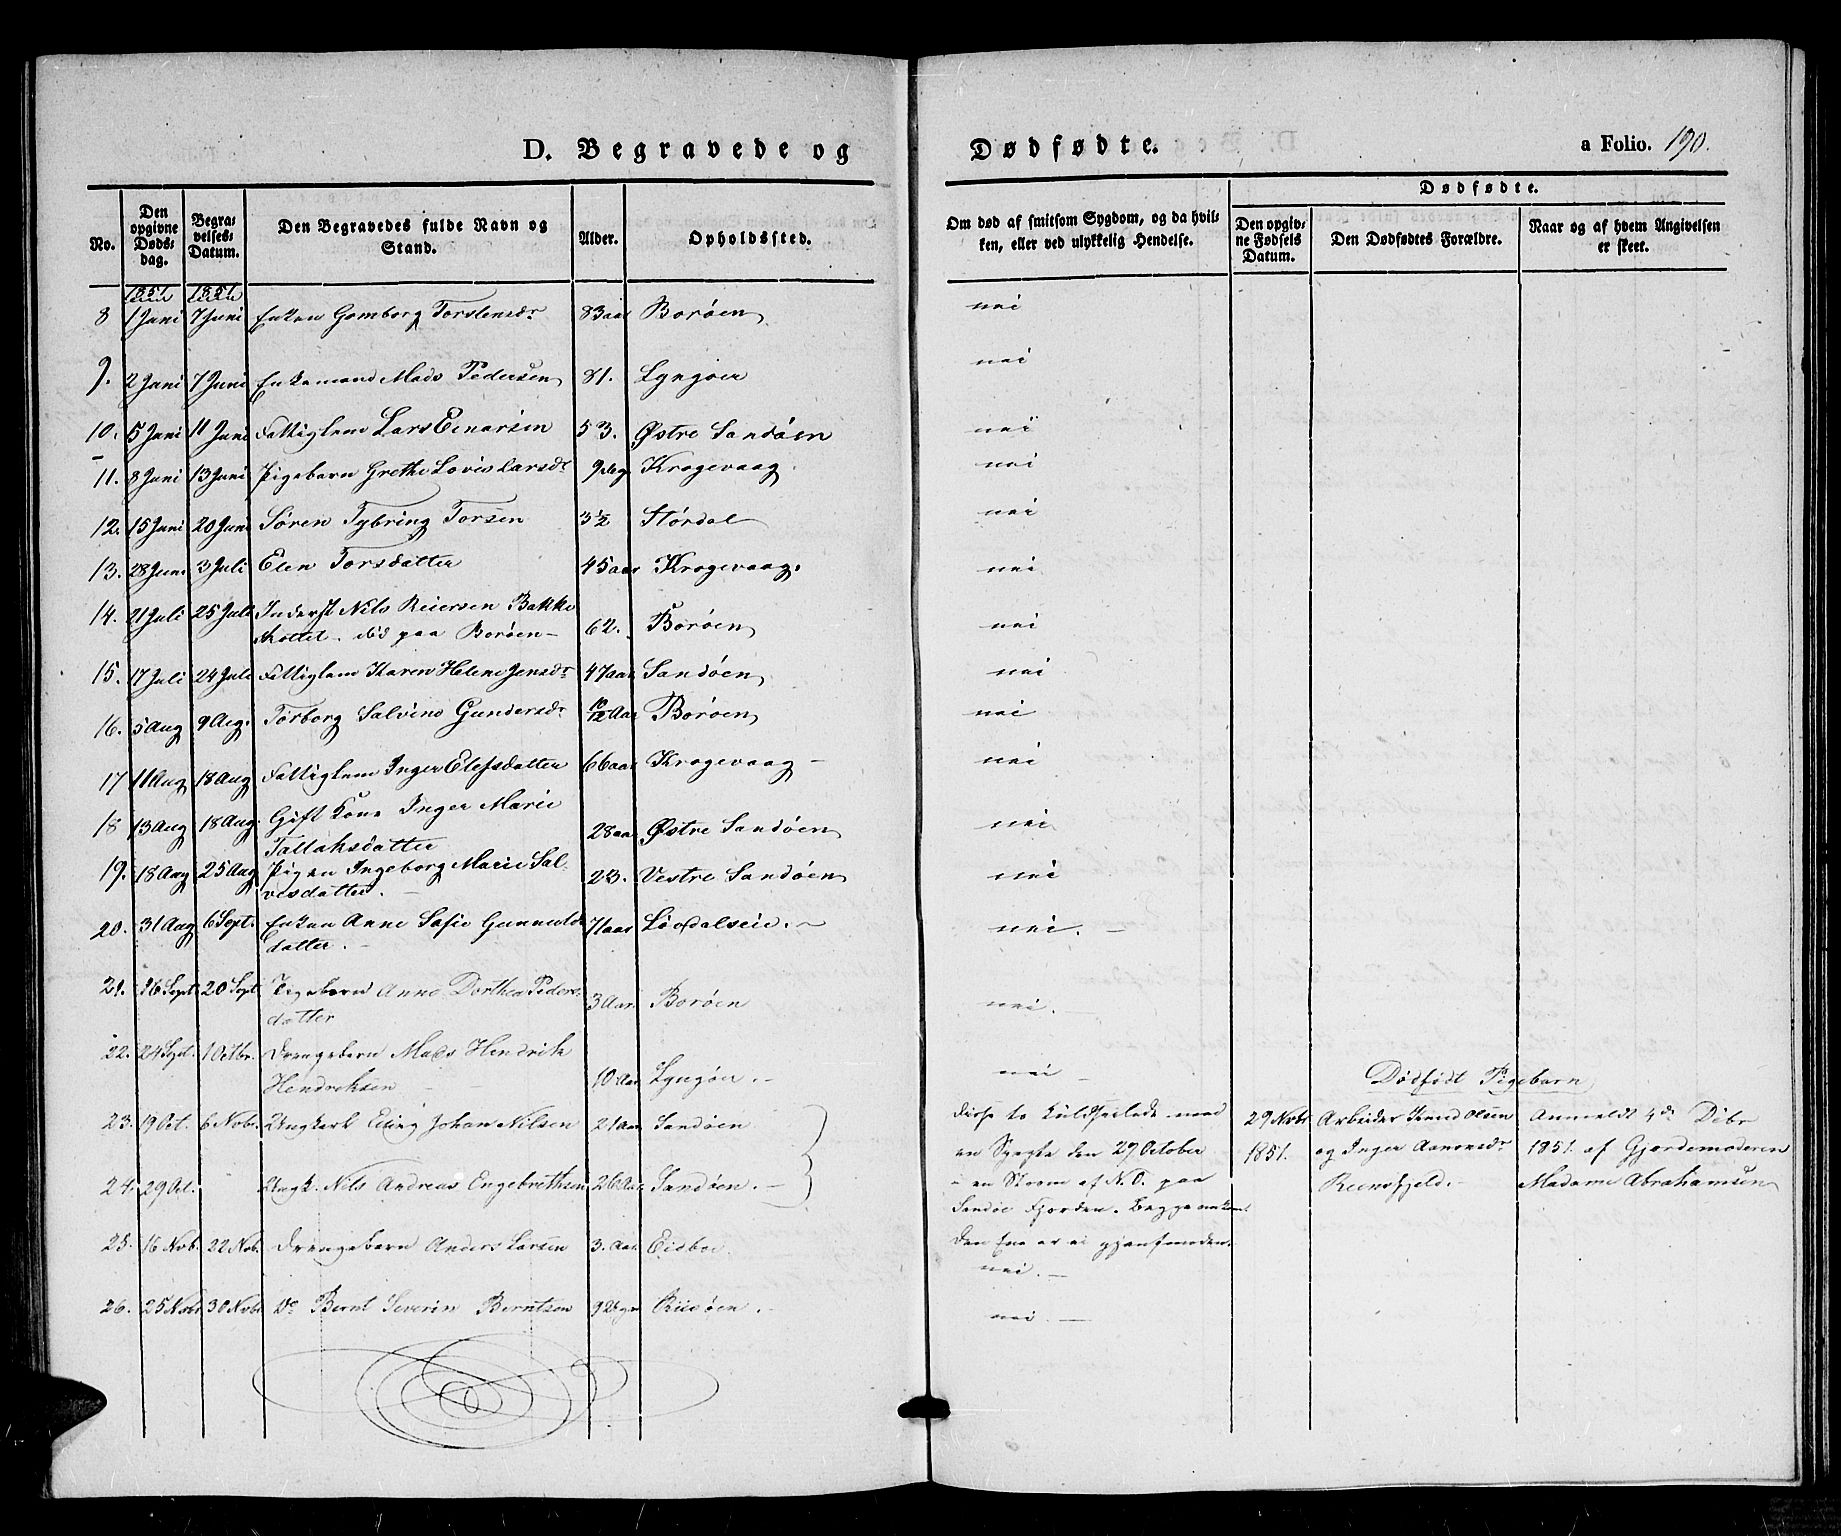 D. Begravede og Dødfødte. a Folio. 190.
No. Den opgivne Døds-dag. Begra-velses-Datum. Den Begravedes fulde Navn og Stand. Alder. Opholdssted. Om død af smitsom Sygdom, og da hvil-ken, eller ved ulykkelig Hendelse. Dødfødte.
Den opgiv-ne Fødsels Datum. Den Dødfødtes Forældre. Naar og af hvem Angivelsen er skeet.
1851 1851
8 1 Juni 7 Juni Enken Gomborg Torstensdr 83 aar Borøen nei
9. 2 Juni 7 Juni Enkemand Mads Pedersen 81. Lyngøer nei
10. 5 Juni 11 Juni Fattiglem Lars Einarsen 53. Østre Sandøen nei
11. 8 Juni 13 Juni Pigebarn Grethe Lovise Larsdr 9 Krogevaag nei
12. 15 Juni 20 Juni Søren Tybring Torsen 3½ Størdal nei
13. 28 Juni 3 Juli Elen Torsdatter 45 aar Krogevaag. nei
14. 21 Juli 25 Juli Inderst Nils Reiersen Bakke
Kottet - død paa Borøen - 62. Borøen nei
15. 17 Juli 24 Juli Fattiglem Karen Helene Jensdr 47 aar Sandøen nei
16. 5 Aug 9 Aug. Torborg Salvine Gundersdr 10/12 Aar Borøen nei
17 11 Aug 18 Aug Fattiglem Inger Elefsdatter 66 aar Krogevaag - nei
18 13 Aug 18 Aug. Gift Kone Inger Marie
Tallaksdatter 28 aar Østre Sandøen nei
19. 18 Aug 25 Aug Pigen Ingeborg Marie Sal-
vesdatter. - 23. Vestre Sandøen nei
20. 31 Aug 6 Sept. Enken Anne Sofie Gunnulds
datter. - 71 aar Løvdalseie. - nei. -
21. 16 Sept 20 Sept. Pigebarn Anne Dorthea Peders-
datter 3 Aar. Borøen nei.
22. 24 Sept. 1 Octbr. Drengebarn Mads Hendrik
Hendriksen - - 10 Aar Lyngøer. - nei - Dødfødt Pigebarn
23. 19 Oct. 6 Nobr. Ungkarl Elling Johan Nilsen 21 Aar Sandøen disse to kuldseilede med 29 Nobr Arbeider Knud Olsen Anmeldt 4de Debr
en Snegte den 29 October 1851. og Inger Aanonsdr 1851. af Gjordemoderen
24. 29 Oct. Ungk. Nils Andreas Engebrethsen 26 Aar Sandøen. - - en Storm af N.O. paa Reensfjeld. - Madame Abrahamsen
Sandøe Fjorden. Begge omkom.
25. 16 Nob. 22 Nob. Drengebarn Anders Larsen 3. Aar Eidboe. Den Ene er ei gjenfunden.
nei. -
26. 25 Nobr 30 Nobr Do Bernt Severin Berntsen 9 Dage Riisøen. - nei. -